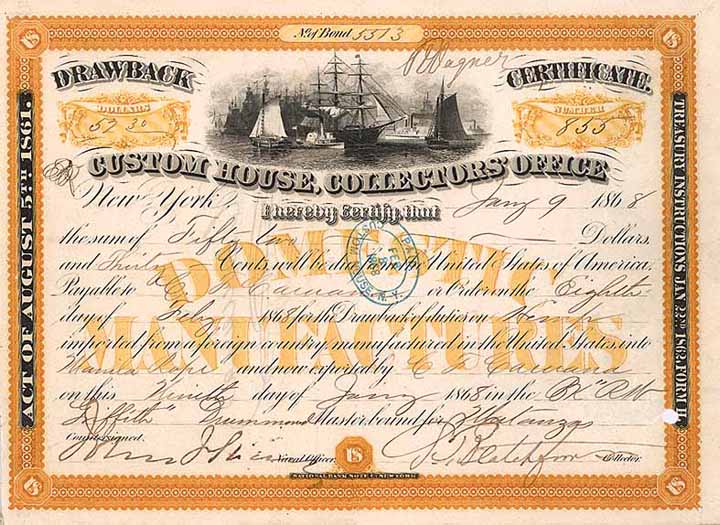 No. of Bond 5513
DRAWBACK CERTIFICATE.
DOLLARS NUMBER
52 30 855
CUSTOM HOUSE, COLLECTORS' OFFICE
New York, Jany 9 1868
I hereby Certify, that
the sum of Fifty two Dollars,
and Thirty Cents, will be due from the United States of America,
Payable to or Order on the Eighth
day of Feby 1868 for the Drawback of duties on Hemp
imported from a foreign country, manufactured in the United States, into
Manila Rope and now exported by
on this Ninth day of Jany 1868 in the Br
Griffith Drummond Master bound for Matanzas
Countersigned.
Naval Officer. Collector.
DOMESTIC
MANUFACTURES
ACT OF AUGUST 5TH 1861.
TREASURY INSTRUCTIONS JAN. 22ND 1862 FORM H.
US
NATIONAL BANK NOTE CO. NEW YORK
CUSTOM HOUSE, N.Y.
FEB